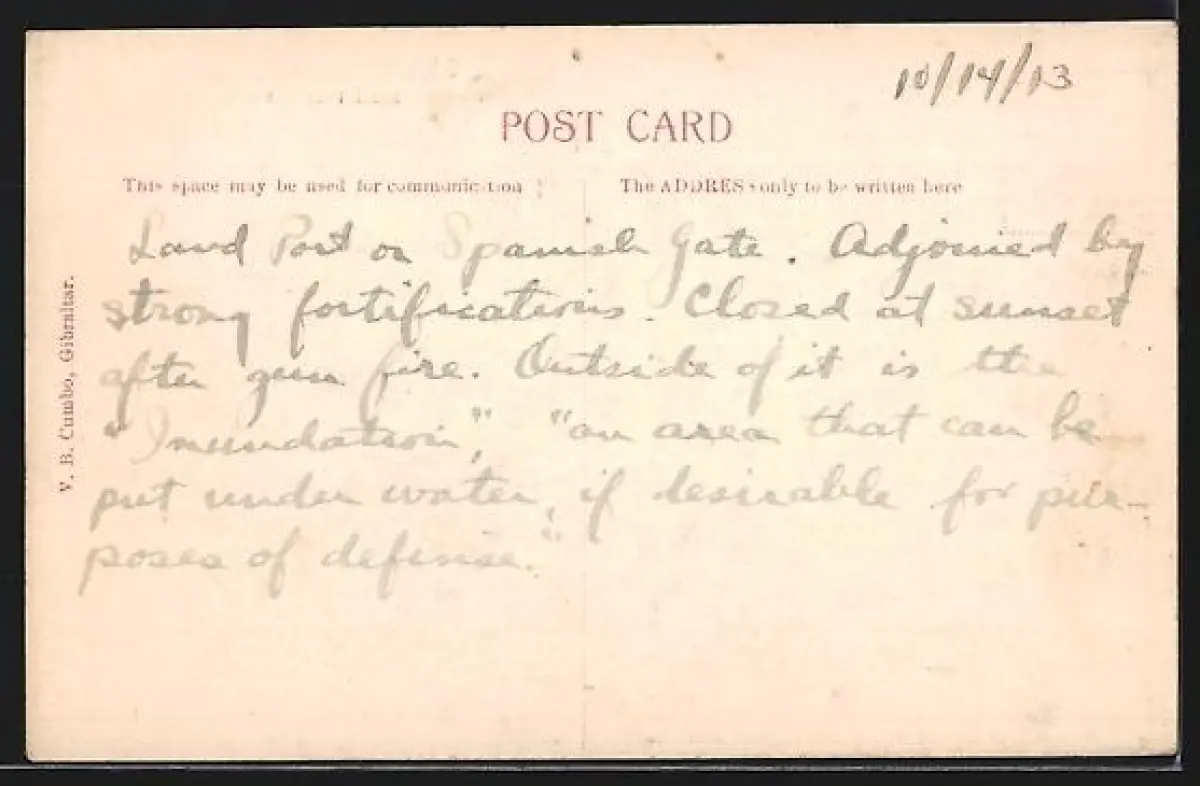 10/14/13
POST CARD
This space may be used for communication
The ADDRESS only to be written here
Land Port or Spanish Gate. Adjoined by
strong fortifications. Closed at sunset
after gun fire. Outside of it is the
"Inundation", "an area that can be
put under water, if desirable for pur-
poses of defense."
V. B. Cumbo, Gibraltar.